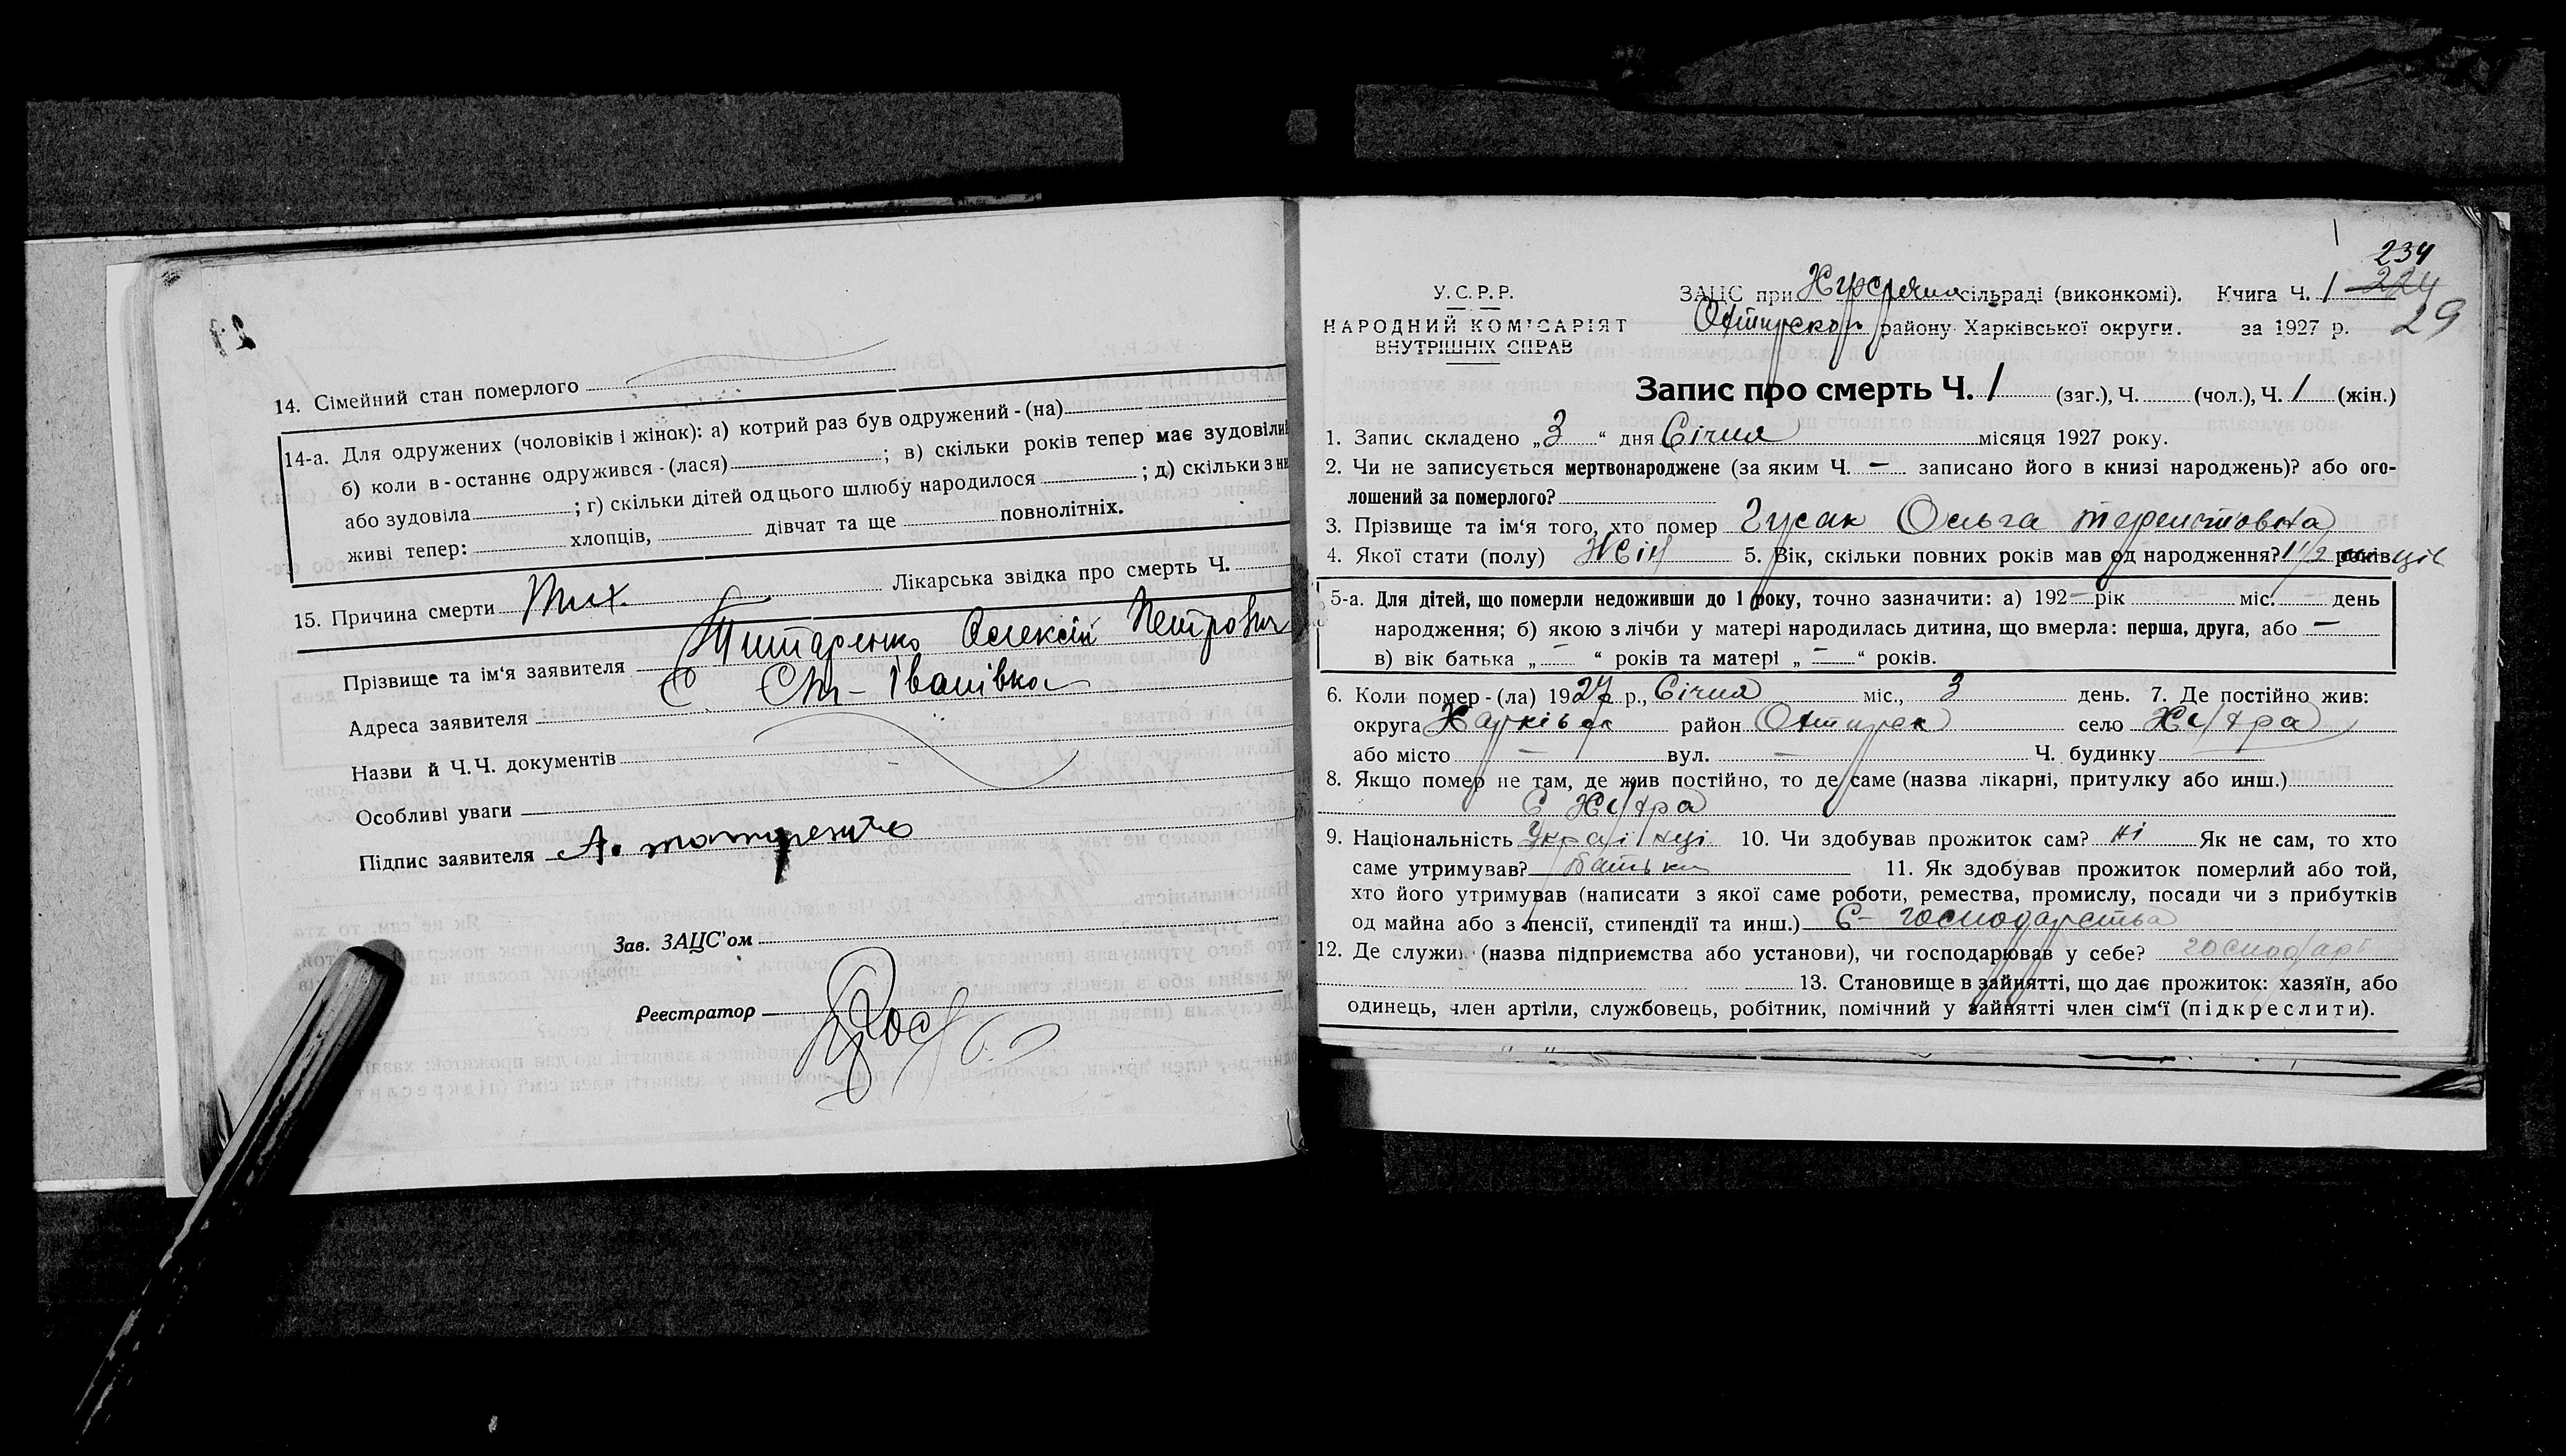 29
14. Сімейний стан померлого
14-а. Для одружених (чоловіків і жінок): а) котрий раз був одружений - (на)
б) коли в - останнє одружився - (лася) ; в) скільки років тепер має зудовілий
або зудовіла ; г) скільки дітей од цього шлюбу народилося ; д) скільки з ни
живі тепер: хлопців, дівчат та ще повнолітніх.
15. Причина смерти Тих. Лікарська звідка про смерть Ч.
Прізвище та ім'я заявителя Титаренко Олексій Петрович
Адреса заявителя С Ст- Іванівка
Назви й Ч.Ч. документів
Особливі уваги
Підпис заявителя А.
Зав. ЗАЦС'ом
Реєстратор
234
У.С.Р.Р.
НАРОДНИЙ КОМІСАРІЯТ
ВНУТРІШНІХ СПРАВ
ЗАЦС при сільраді (виконкомі). Кчига Ч. 1 224
Охтирськог району Харківської округи. за 1927 р. 29
Запис про смерть Ч. 1 (заг.), Ч. (чол.), Ч. 1 (жін.)
1. Запис складено „3“ дня Січня місяця 1927 року.
2. Чи не записується мертвонароджене (за яким Ч. — записано його в книзі народжень)? або ого-
лошений за померлого?
3. Прізвище та ім'я того, хто помер Гусак Ольга
4. Якої стати (полу) Жін 5. Вік, скільки повних років мав од народження? 1 1/2 років
5-а. Для дітей, що померли недоживши до 1 року, точно зазначити: а) 192—рік міс. день
народження; б) якою з лічби у матері народилась дитина, що вмерла: перша, друга, або —
в) вік батька „—“ років та матері „—“ років.
6. Коли помер - (ла) 1927 р., Січня міс., 3 день. 7. Де постійно жив:
округа Харківск район Охтирск село Хухра
або місто — вул. — Ч. будинку —
8. Якщо помер не там, де жив постійно, то де саме (назва лікарні, притулку або инш.)
С Хухра
9. Національність Украінці 10. Чи здобував прожиток сам? ні Як не сам, то хто
саме утримував? батьки 11. Як здобував прожиток померлий або той,
хто його утримував (написати з якої саме роботи, ремества, промислу, посади чи з прибутків
од майна або з пенсії, стипендії та инш.) С- господарства
12. Де служив (назва підприємства або установи), чи господарював у себе? господарі
13. Становище в зайнятті, що дає прожиток: хазяїн, або
одинець, член артіли, службовець, робітник, помічний у зайнятті член сім'ї (підкреслити).